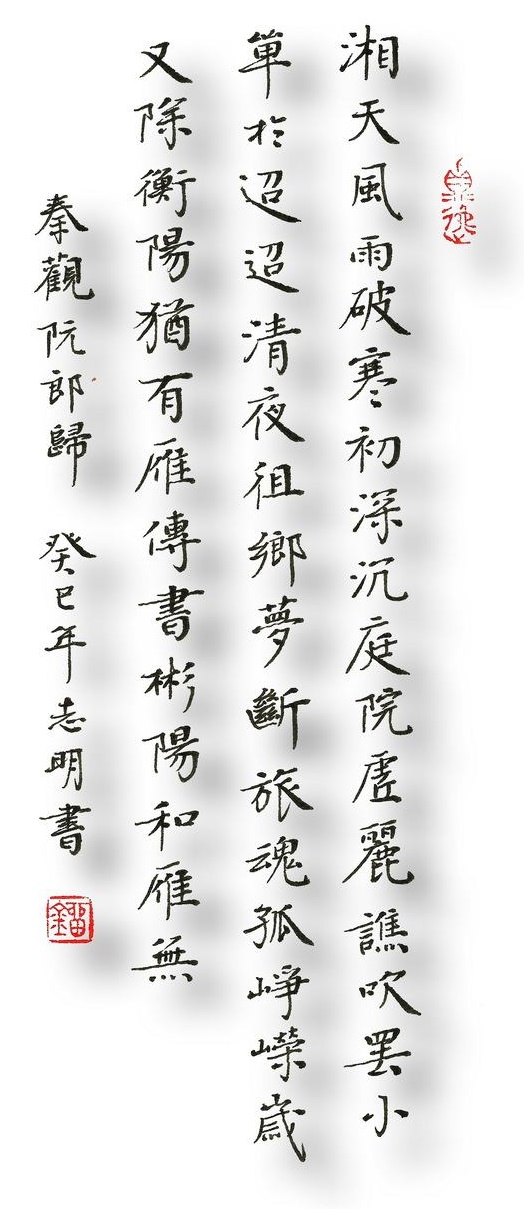 湘天風雨破寒初深沉庭院虛麗譙吹罷小
單於迢迢清夜徂鄉夢斷旅魂孤崢嶸歲
又除衡陽猶有雁傳書彬陽和雁無
秦觀阮郎歸 癸巳年志明書
鎦